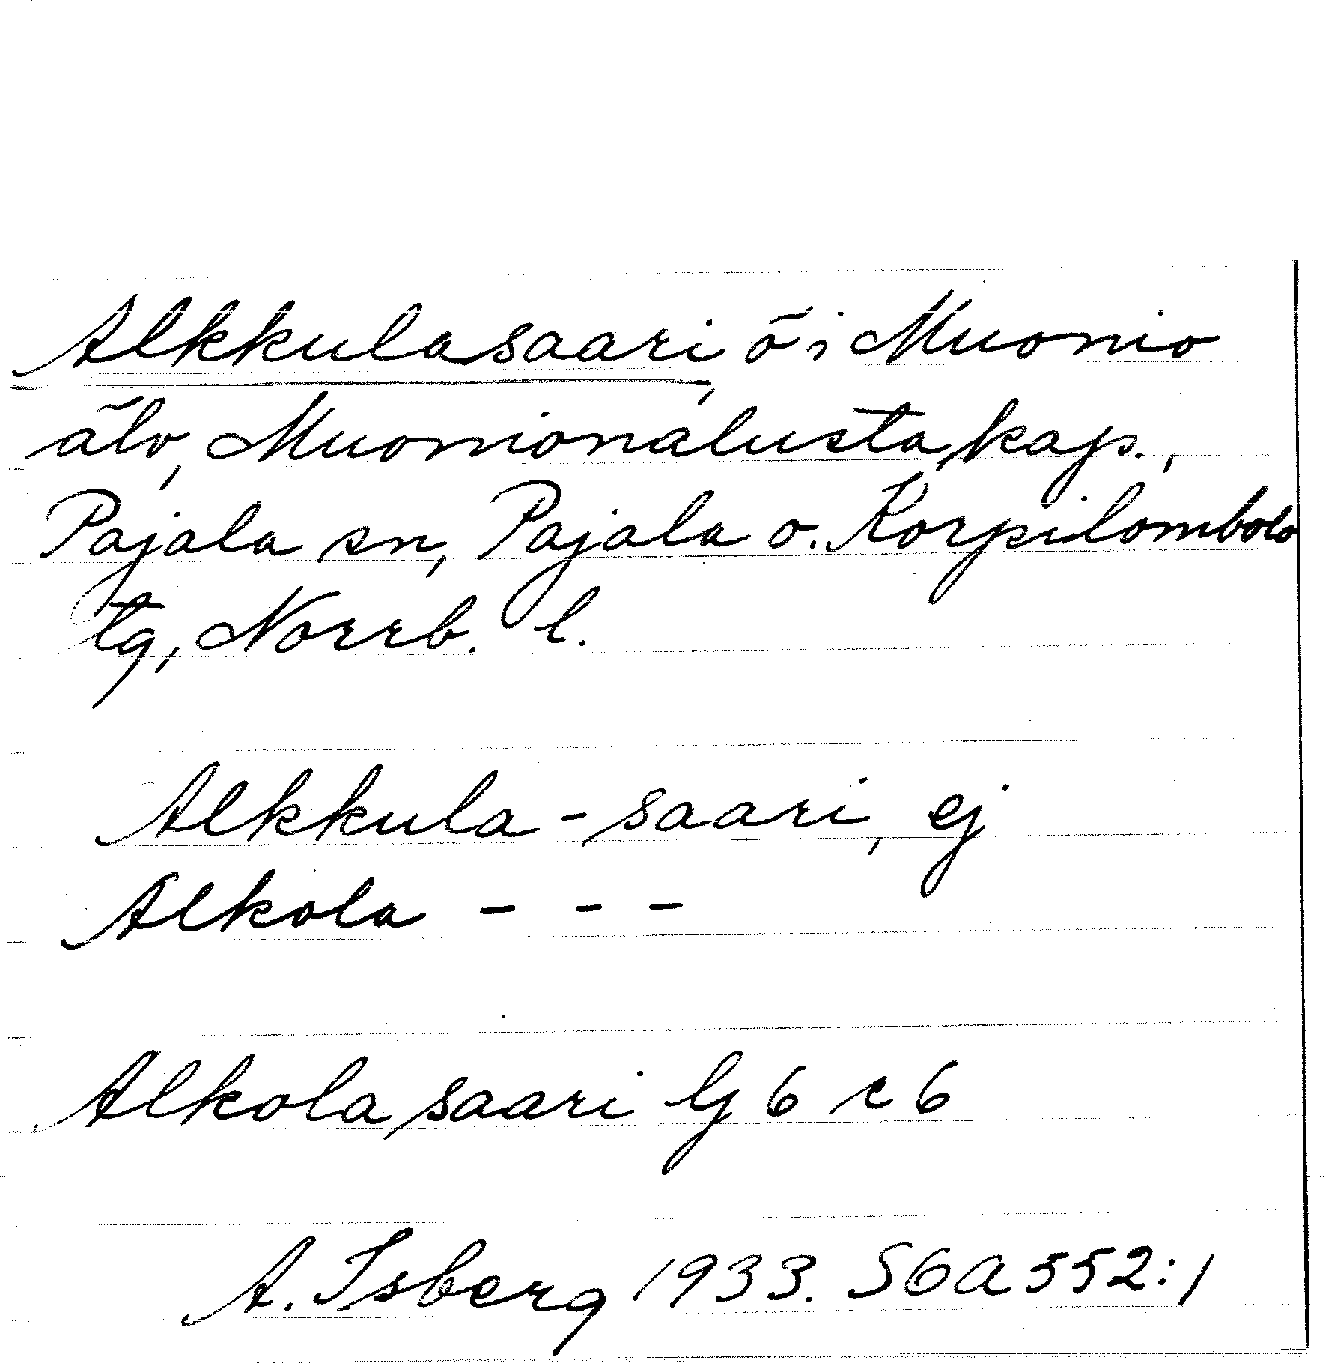 Alkkulasaari, ö i Muonio
älv, Muonionalusta kap.,
Pajala sn, Pajala o. Korpilombolo
tg, Norrb. l.
Alkkula-saari, ej
Alkola - - -
Alkolasaari Gj 6 c 6
A. Isberg 1933. SGA 552:1